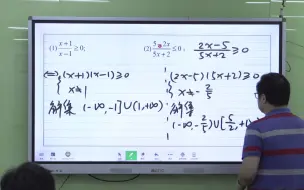 (1) \frac{x+1}{x-1} ≥ 0;
(2) \frac{5-2x}{5x+2} ≤ 0; \frac{2x-5}{5x+2} ≥ 0
⇔ { (x+1)(x-1) ≥ 0
x ≠ 1
解集 (-∞, -1] ∪ (1, +∞).
{ (2x-5)(5x+2) ≥ 0
x ≠ -\frac{2}{5}
解集
(-∞, -\frac{2}{5}) ∪ [\frac{5}{2}, +∞